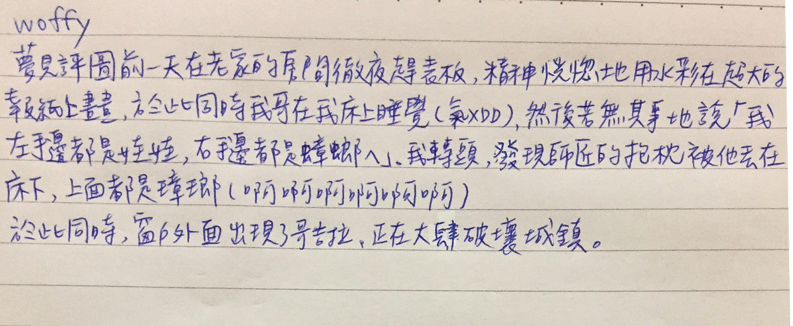 woffy
夢見評圖前一天在老家的房間徹夜趕表板，精神恍惚地用水彩在超大的
報紙上畫畫，於此同時我哥在我床上睡覺（氣XDD），然後若無其事地說「我
左手邊都是娃娃，右手邊都是蟑螂ㄟ」、我轉頭，發現師匠的抱枕被他丟在
床下，上面都是璋瑯（啊啊啊啊啊啊）
於此同時，窗戶外面出現了哥吉拉，正在大肆破壞城鎮。